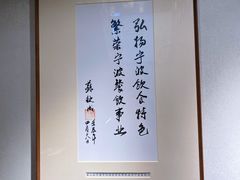 弘扬宁波饮食特色
繁荣宁波餐饮事业